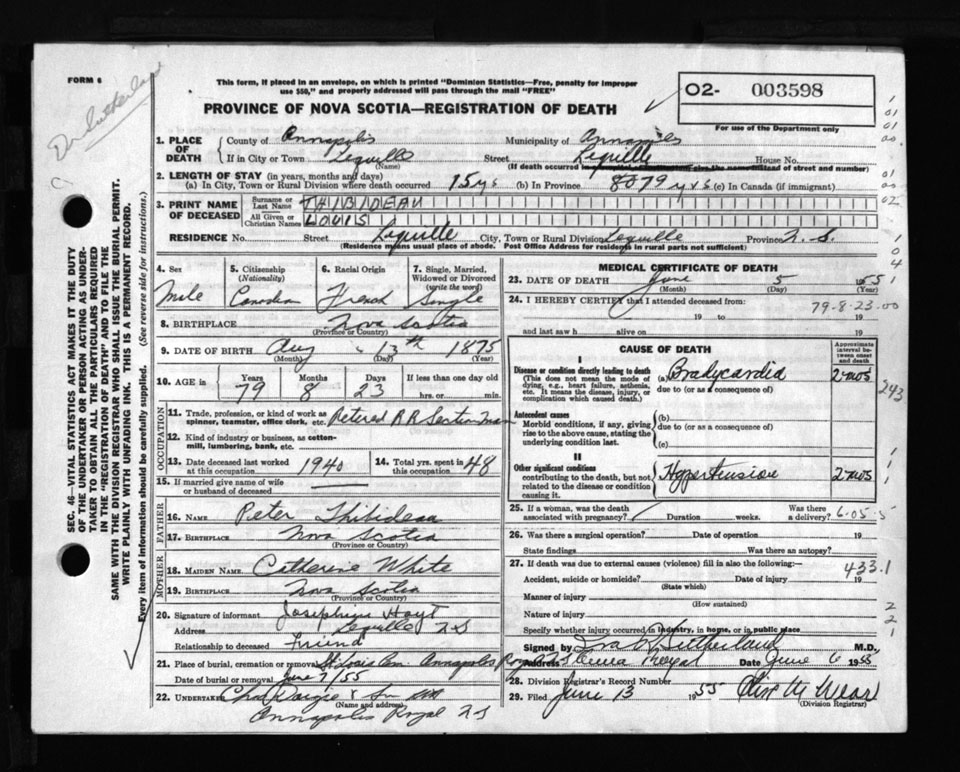 FORM 6
Dr Sutherland
This form, if placed in an envelope, on which is printed "Dominion Statistics—Free, penalty for improper
use $50," and properly addressed will pass through the mail "FREE"
PROVINCE OF NOVA SCOTIA—REGISTRATION OF DEATH
O2- 003598
For use of the Department only
SEC. 46—VITAL STATISTICS ACT MAKES IT THE DUTY
OF THE UNDERTAKER OR PERSON ACTING AS UNDER-
TAKER TO OBTAIN ALL THE PARTICULARS REQUIRED
IN THE "REGISTRATION OF DEATH" AND TO FILE THE
SAME WITH THE DIVISION REGISTRAR WHO SHALL ISSUE THE BURIAL PERMIT.
WRITE PLAINLY WITH UNFADING INK. THIS IS A PERMANENT RECORD.
Every item of information should be carefully supplied. (See reverse side for instructions.)
1. PLACE OF DEATH County of Annapolis Municipality of Annapolis
If in City or Town Lequille Street Lequille House No.
(Name) (If death occurred give the name instead of street and number)
2. LENGTH OF STAY (in years, months and days)
(a) In City, Town or Rural Division where death occurred 15 ys (b) In Province 8079 yrs (c) In Canada (if immigrant)
3. PRINT NAME OF DECEASED Surname or Last Name THIBIDEAU
All Given or Christian Names LOUIS
RESIDENCE No. Street Lequille City, Town or Rural Division Lequille Province N.S.
(Residence means usual place of abode. Post Office Address for residents in rural parts not sufficient)
4. Sex Male
5. Citizenship (Nationality) Canadian
6. Racial Origin French
7. Single, Married, Widowed or Divorced (write the word) Single
8. BIRTHPLACE Nova Scotia
(Province or Country)
9. DATE OF BIRTH Aug 13th 1875
(Month) (Day) (Year)
10. AGE in Years 79 Months 8 Days 23 If less than one day old hrs. or min.
OCCUPATION
11. Trade, profession, or kind of work as spinner, teamster, office clerk, etc. Retired RR Section Man
12. Kind of industry or business, as cotton-mill, lumbering, bank, etc.
13. Date deceased last worked at this occupation 1940 14. Total yrs. spent in this occupation 48
15. If married give name of wife or husband of deceased
FATHER
16. NAME Peter Thibideau
17. BIRTHPLACE Nova Scotia
(Province or Country)
MOTHER
18. MAIDEN NAME Catherine White
19. BIRTHPLACE Nova Scotia
(Province or Country)
20. Signature of informant Josephine Hoyt
Address Lequille N S
Relationship to deceased Friend
21. Place of burial, cremation or removal St Louis Cem. Annapolis Royal N S
Date of burial or removal June 7/55
22. UNDERTAKER
(Name and address)
Annapolis Royal N S
MEDICAL CERTIFICATE OF DEATH
23. DATE OF DEATH June 5 1955
(Month) (Day) (Year)
24. I HEREBY CERTIFY that I attended deceased from: 79-8-23-00
19 to 19
and last saw h alive on 19
CAUSE OF DEATH
Approximate interval between onset and death
I
Disease or condition directly leading to death (a) Bradycardia 2 mos 243
(This does not mean the mode of dying, e.g., heart failure, asthenia, etc. It means the disease, injury, or complication which caused death.)
due to (or as a consequence of)
Antecedent causes (b)
Morbid conditions, if any, giving rise to the above cause, stating the underlying condition last.
due to (or as a consequence of)
(c)
II
Other significant conditions Hypertension 2 mos
contributing to the death, but not related to the disease or condition causing it.
25. If a woman, was the death associated with pregnancy? Duration weeks. Was there a delivery? 6-05-5
26. Was there a surgical operation? Date of operation 19
State findings Was there an autopsy?
27. If death was due to external causes (violence) fill in also the following:— 433.1
Accident, suicide or homicide? Date of injury 19
(State which)
Manner of injury
(How sustained)
Nature of injury
Specify whether injury occurred in industry, in home, or in public place
Signed by Sutherland M.D.
Address Annap Royal Date June 6 1955
28. Division Registrar's Record Number
29. Filed June 13 1955
(Division Registrar)